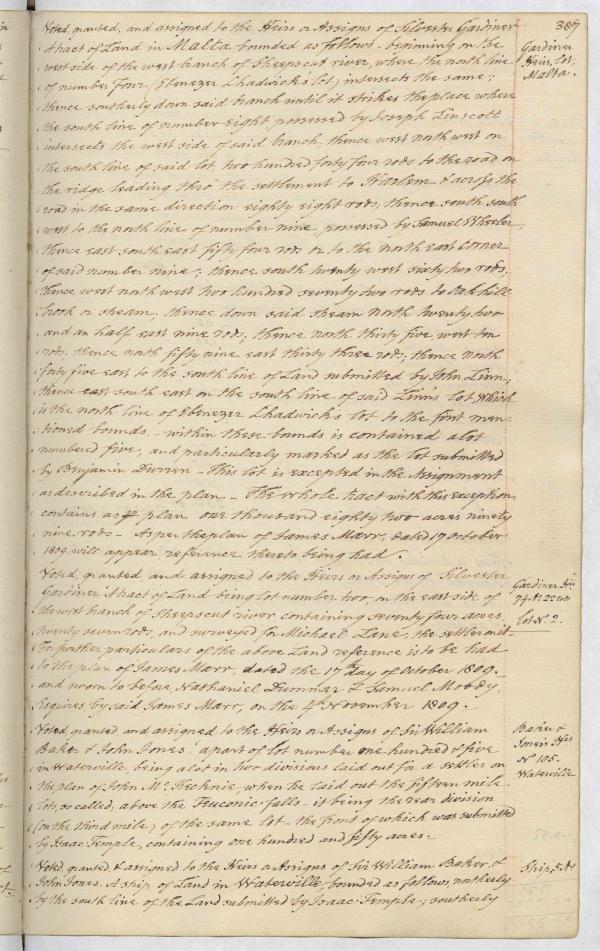 387
Voted, granted, and assigned to the Heirs or Assigns of Silvester Gardiner
A tract of Land in Malta bounded as follows - beginning on the
west side of the west branch of Sheepscut river, where the north line
of number Four (Ebenezer Chadwick's lot) intersects the same;
thence southerly down said branch until it strikes the place where
the south line of number eight, possessed by Joseph Linscott
intersects the west side of said branch, thence west north west on
the south line of said lot, two hundred forty four rods to the road on
the ridge leading thro' the settlement to Harlem & across the
road in the same direction eighty eight rods, thence south south
west to the north line of number nine, possessed by Samuel Wheeler,
thence east south east fifty four rods or to the north east corner
of said number nine; thence south twenty west sixty two rods,
thence west north west two hundred seventy two rods to Oak hill
brook or stream; thence down said stream north twenty two
and an half east nine rods; thence north thirty five west ten
rods, thence north fifty nine east thirty three rods, thence north
forty five east to the south line of Land submitted by John Linn;
thence east south east on the south line of said Linn's lot, which
is the north line of Ebenezer Chadwick's lot to the first men-
tioned bounds - within these bounds is contained a lot
numbered five, and particularly marked as the lot submitted
by Benjamin Durren - This lot is excepted in the Assignment
as described in the plan - The whole tract with this exception
contains as pr plan one thousand eighty two acres ninety
nine rods - As per the plan of James Marr, dated 17 October
1809. will appear, reference thereto being had.
Gardiner
Heirs, lot,
Malta.
Voted, granted, and assigned to the Heirs or Assigns of Silvester
Gardiner A tract of Land being lot number two, on the east side of
the west branch of Sheepscut river, containing seventy four acres,
twenty seven rods, and surveyed for Michael Lane, the settler on it -
For further particulars of the above Land reference is to be had
to the plan of James Marr, dated the 17th day of October 1809.
and sworn to before Nathaniel Dummer & Samuel Moody
Esquires by said James Marr, on the 4th November 1809.
Gardiner Hrs
Lot No. 2.
Voted, granted, and assigned to the Heirs or Assigns of Sir William
Baker & John Jones, a part of lot number one hundred & five
in Waterville, being a lot in two divisions laid out for a settler on
the plan of John McKechnie, when he laid out the fifteen mile
lots, so called, above the Teuconic falls - it being the rear division
(on the third mile) of the same lot - the front of which was submitted
by Isaac Temple, containing one hundred and fifty acres.
Baker &
Jones's Hrs
No. 105.
Waterville
Voted, granted & assigned to the Heirs or Assigns of Sir William Baker &
John Jones. A strip of Land in Waterville, bounded as follows, northerly
by the south line of the Land submitted by Isaac Temple; southerly
Strip,